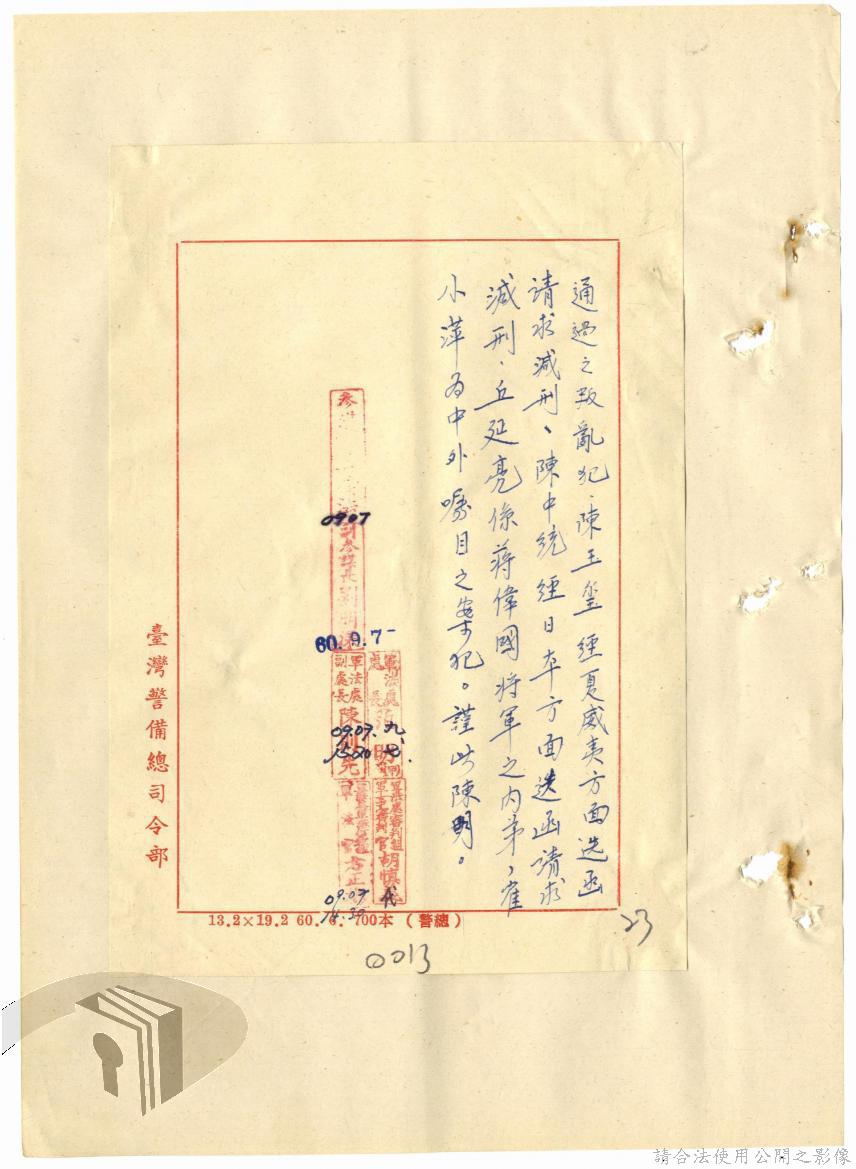 通過之叛亂犯、陳玉璽經夏威夷方面迭函
請求減刑、陳中統經日本方面迭函請求
減刑、丘延亮係蔣偉國將軍之內弟，崔
小萍為中外囑目之案犯。謹此陳明。
副參謀長
0907
60.9.7-
軍法處
處長
九、七、
軍法處
副處長 陳
09.07
1520
軍法處審判組
官胡慎
代
09.07
14.30
臺灣警備總司令部
13.2×19.2 60. 6. 700本 (警總)
23
0013
請合法使用公開之影像